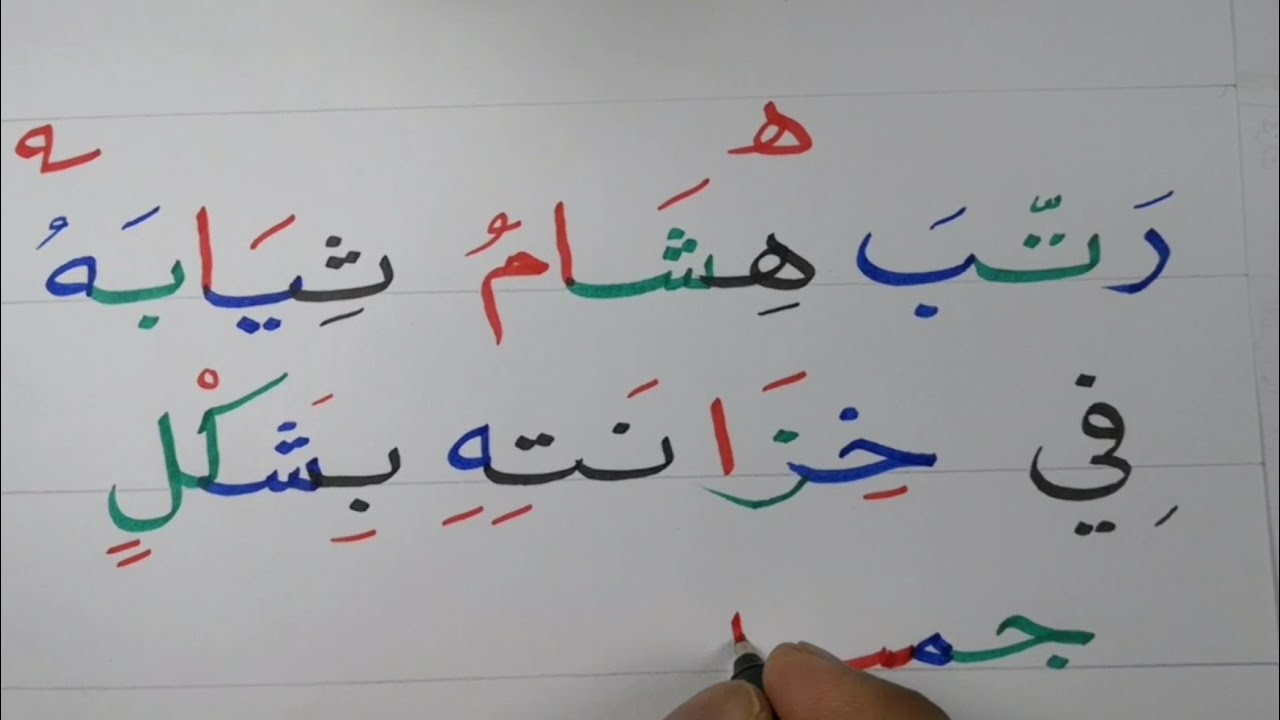 ه ه
رَتَّبَ هِشَامُ ثِيَابَهُ
فِي خِزَانَتِهِ بِشَكْلٍ